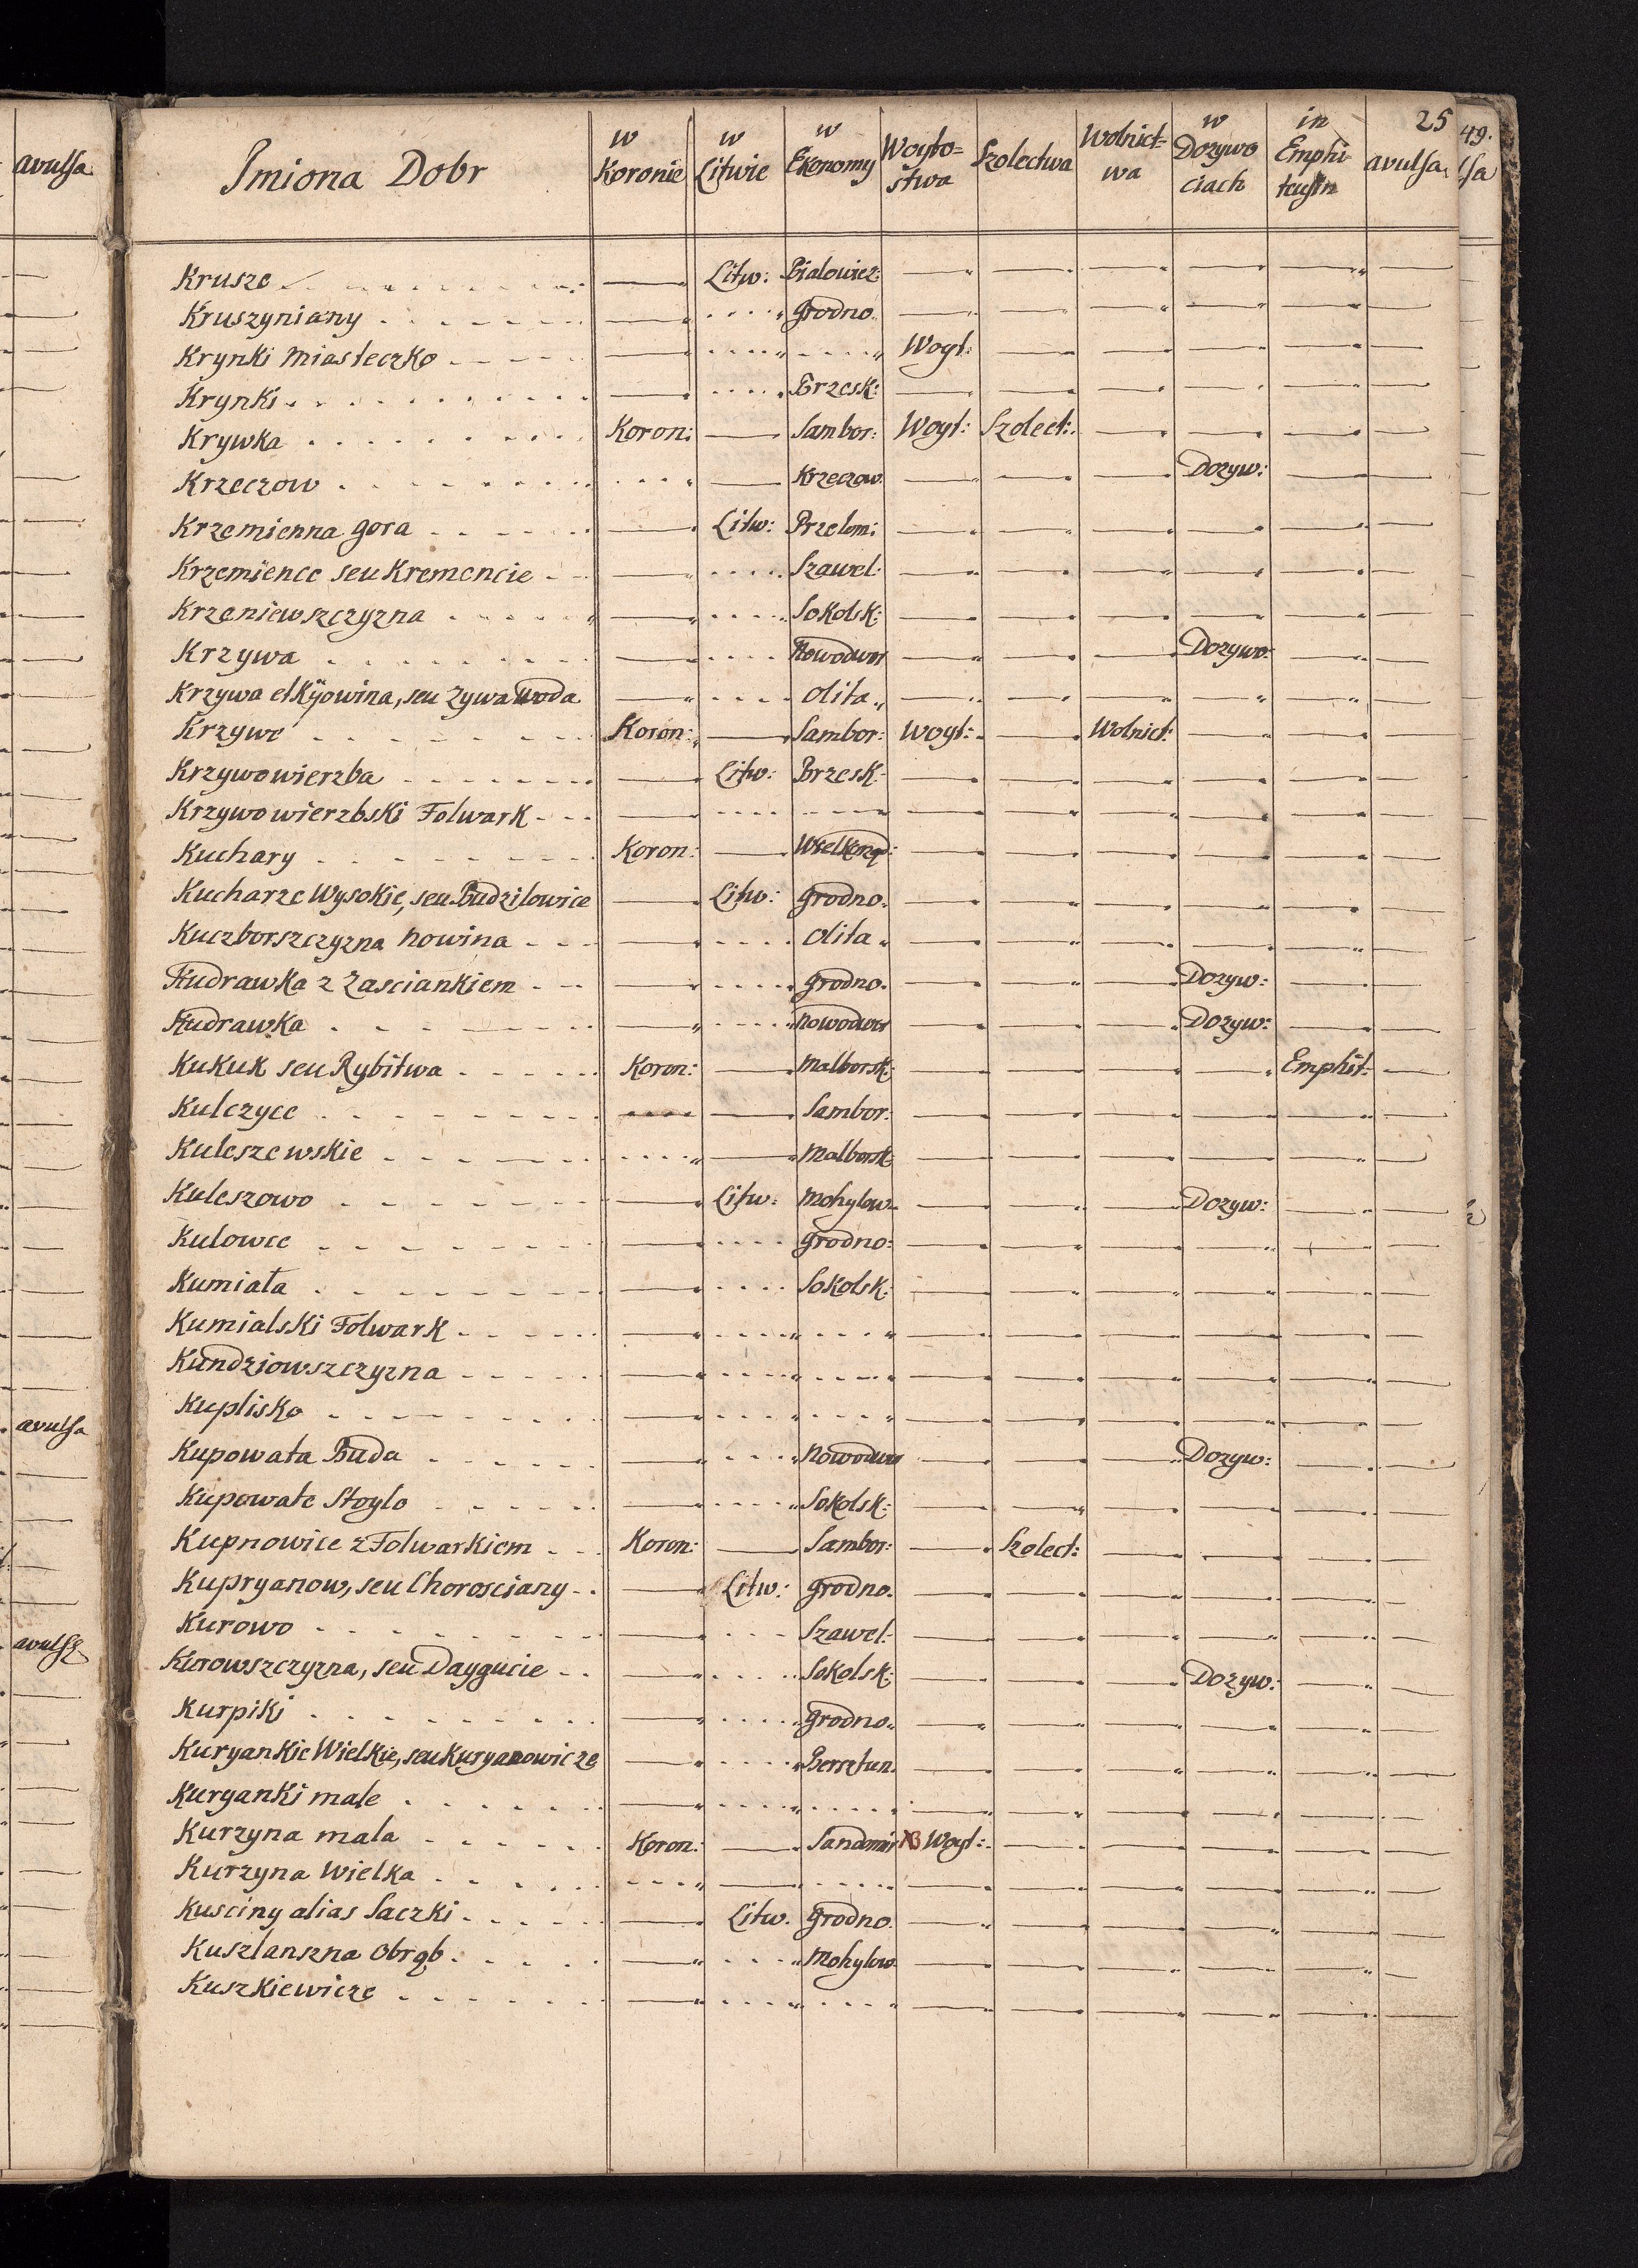 avulsa
25
49.
Imiona Dobr w Koronie w Litwie w Ekonomy Woyto=stwa Szolectwa Wolnict=wa w Dozywociach in Emphiteusin avulsa
Krusze Litw: Bialowiez:
Kruszyniany Grodno.
Krynki Miasteczko Woyt:
Krynki Brzesk:
Krywka Koron: Sambor: Woyt: Szolect:
Krzeczow Krzeczow. Dozyw:
Krzemienna gora Litw: Przelom:
Krzemience seu Kremencie Szawel:
Krzeniewszczyzna Sokolsk:
Krzywa Nowodwor Dozywo:
Krzywa et Kijowina, seu Zywa Woda Olita
Krzywe Koron: Sambor: Woyt: Wolnict:
Krzywowierzba Litw: Brzesk:
Krzywowierzbski Folwark
Kuchary Koron: Wielkorząd:
Kucharze Wysokie, seu Budzilowice Litw: Grodno.
Kuczborszczyzna Nowina Olita
Kudrawka z Zasciankiem Grodno. Dozyw:
Kudrawka Nowodwor Dozyw:
Kukuk seu Rybitwa Koron: Malborsk: Emphit:
Kulczyce Sambor:
Kuleszewskie Malborsk:
Kuleszowo Litw: Mohylow. Dozyw:
Kulowce Grodno:
Kumiała Sokolsk:
Kumialski Folwark
Kundziowszczyzna
Kuplisko
Kupowata Buda Nowodwor Dozyw:
Kupowate Stoylo Sokolsk:
Kupnowice z Folwarkiem Koron: Sambor: Szolect:
Kupryanow, seu Chorosciany Litw: Grodno.
Kurowo Szawel:
Kurowszczyzna, seu Daygucie Sokolsk: Dozyw:
Kurpiki Grodno.
Kuryankie Wielkie, seu Kuryanowicze Bersztun.
Kuryanki male
Kurzyna mala Koron: Sandomir NB Woyt:
Kurzyna Wielka
Kusciny alias Saczki Litw. Grodno.
Kuszlanszna Obrąb Mohylow
Kuszkiewicze
avulsa
avulsa